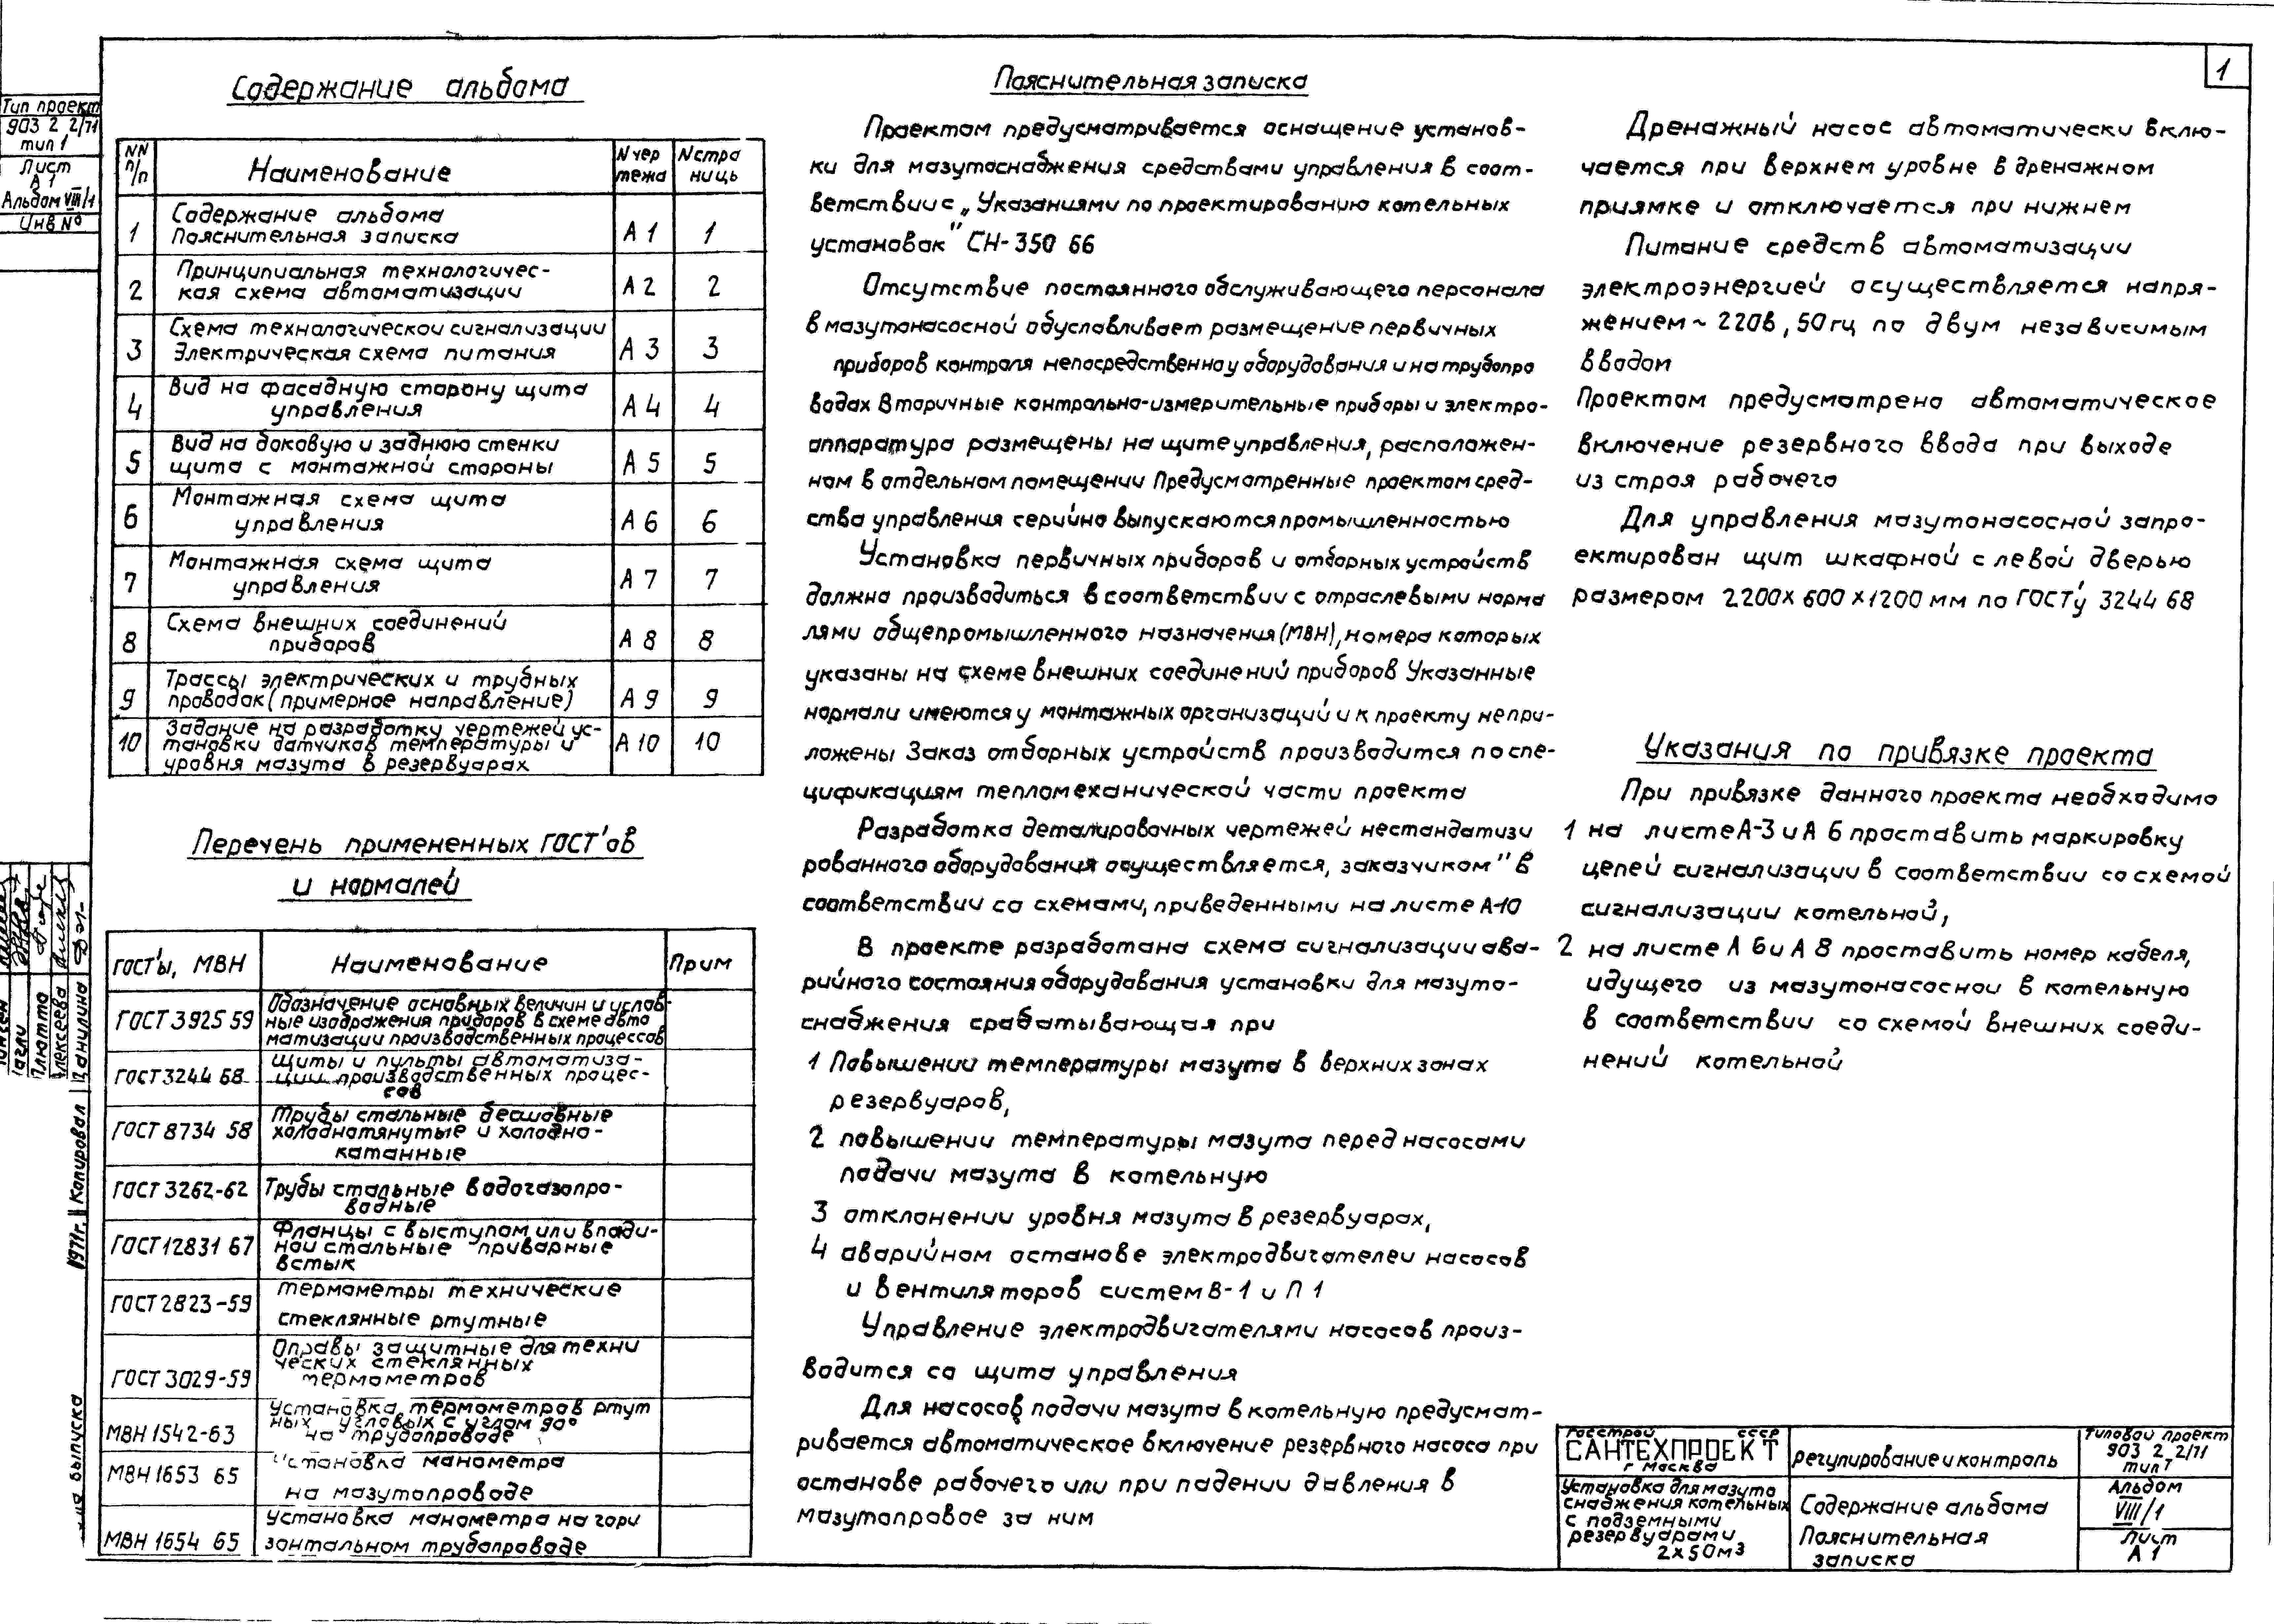 1
Тип проект
903 2 2/71
тип 1
Лист
А 1
Альбом VIII/1
Инв №
Содержание альбома
NN п/п
Наименование
N чертежа
N страниць
1
Содержание альбома
Пояснительная записка
А 1
1
2
Принципиальная технологичес-
кая схема автоматизации
А 2
2
3
Схема технологической сигнализации
Электрическая схема питания
А 3
3
4
Вид на фасадную сторону щита
управления
А 4
4
5
Вид на боковую и заднюю стенки
щита с монтажной стороны
А 5
5
6
Монтажная схема щита
управления
А 6
6
7
Монтажная схема щита
управления
А 7
7
8
Схема внешних соединений
приборов
А 8
8
9
Трассы электрических и трубных
проводок (примерное направление)
А 9
9
10
Задание на разработку чертежей ус-
тановки датчиков температуры и
уровня мазута в резервуарах
А 10
10
Перечень примененных ГОСТ'ов
и нормалей
ГОСТ'ы, МВН
Наименование
Прим
ГОСТ 3925 59
Обозначение основных величин и услов-
ные изображения приборов в схеме авто
матизации производственных процессов
ГОСТ 3244 68
Щиты и пульты автоматиза-
ции производственных процес-
сов
ГОСТ 8734 58
Трубы стальные бесшовные
холоднотянутые и холодно-
катанные
ГОСТ 3262-62
Трубы стальные водогазопро-
водные
ГОСТ 12831 67
Фланцы с выступом или впади-
ной стальные приварные
встык
ГОСТ 2823-59
термометры технические
стеклянные ртутные
ГОСТ 3029-59
Оправы защитные для техни
ческих стеклянных
термометров
МВН 1542-63
Установка термометров ртут
ных угловых с углом 90°
на трубопроводе
МВН 1653 65
Установка манометра
на мазутопроводе
МВН 1654 65
Установка манометра на гори
зонтальном трубопроводе
Пояснительная записка
Проектом предусматривается оснащение установ-
ки для мазутоснабжения средствами управления в соот-
ветствии с „Указаниями по проектированию котельных
установок" СН-350 66
Отсутствие постоянного обслуживающего персонала
в мазутонасосной обуславливает размещение первичных
приборов контроля непосредственно у оборудования и на трубопро
водах Вторичные контрольно-измерительные приборы и электро-
аппаратура размещены на щите управления, расположен-
ном в отдельном помещении Предусмотренные проектом сред-
ства управления серийно выпускаются промышленностью
Установка первичных приборов и отборных устройств
должна производиться в соответствии с отраслевыми норма
лями общепромышленного назначения (МВН), номера которых
указаны на схеме внешних соединений приборов Указанные
нормали имеются у монтажных организаций и к проекту непри-
ложены Заказ отборных устройств производится по спе-
цификациям тепломеханической части проекта
Разработка деталировочных чертежей нестандатизи
рованного оборудования осуществляется, заказчиком" в
соответствии со схемами, приведенными на листе А-10
В проекте разработана схема сигнализации ава-
рийного состояния оборудования установки для мазуто-
снабжения срабатывающая при
1 Повышении температуры мазута в верхних зонах
резервуаров,
2 повышении температуры мазута перед насосами
подачи мазута в котельную
3 отклонении уровня мазута в резервуарах,
4 аварийном останове электродвигателей насосов
и вентиляторов систем В-1 и П 1
Управление электродвигателями насосов произ-
водится со щита управления
Для насосов подачи мазута в котельную предусмат-
ривается автоматическое включение резервного насоса при
останове рабочего или при падении давления в
мазутопровое за ним
Дренажный насос автоматически вклю-
чается при верхнем уровне в дренажном
приямке и отключается при нижнем
Питание средств автоматизации
электроэнергией осуществляется напря-
жением ~ 220в, 50гц по двум независимым
вводом
Проектом предусмотрено автоматическое
включение резервного ввода при выходе
из строя рабочего
Для управления мазутонасосной запро-
ектирован щит шкафной с левой дверью
размером 2200х 600 х1200 мм по ГОСТ'у 3244 68
Указания по привязке проекта
При привязке данного проекта необходимо
1 на листе А-3 и А 6 проставить маркировку
цепей сигнализации в соответствии со схемой
сигнализации котельной,
2 на листе А 6 и А 8 проставить номер кабеля,
идущего из мазутонасосной в котельную
в соответствии со схемой внешних соеди-
нений котельной
Плютто
Алексеева
Данилина
Копировал
1971г.
выпуска
Госстрой СССР
САНТЕХПРОЕКТ
г Москва
Регулирование и контроль
Типовой проект
903 2 2/71
тип 1
Установка для мазуто
снабжения котельных
с подземными
резервуарами
2х50м3
Содержание альбома
Пояснительная
записка
Альбом
VIII/1
Лист
А 1